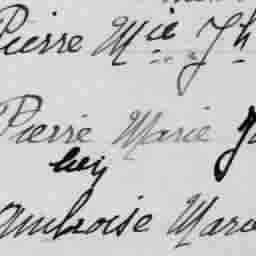 Pierre Mie Jh
Pierre Marie
Ambroise Marie